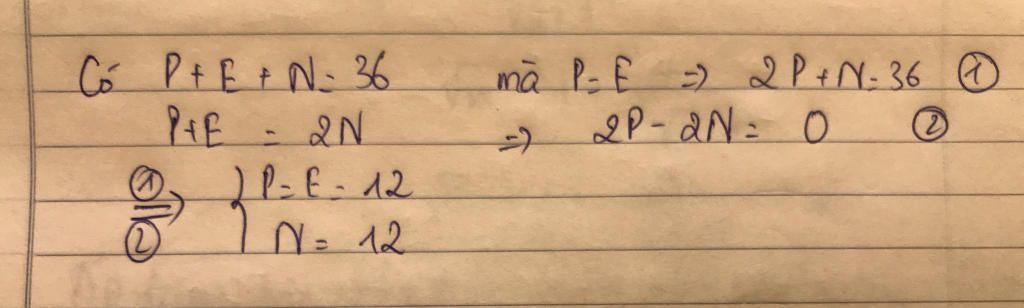 Có P + E + N = 36 mà P = E => 2P + N = 36 ①
P + E = 2N => 2P - 2N = 0 ②
① => { P = E = 12
② N = 12